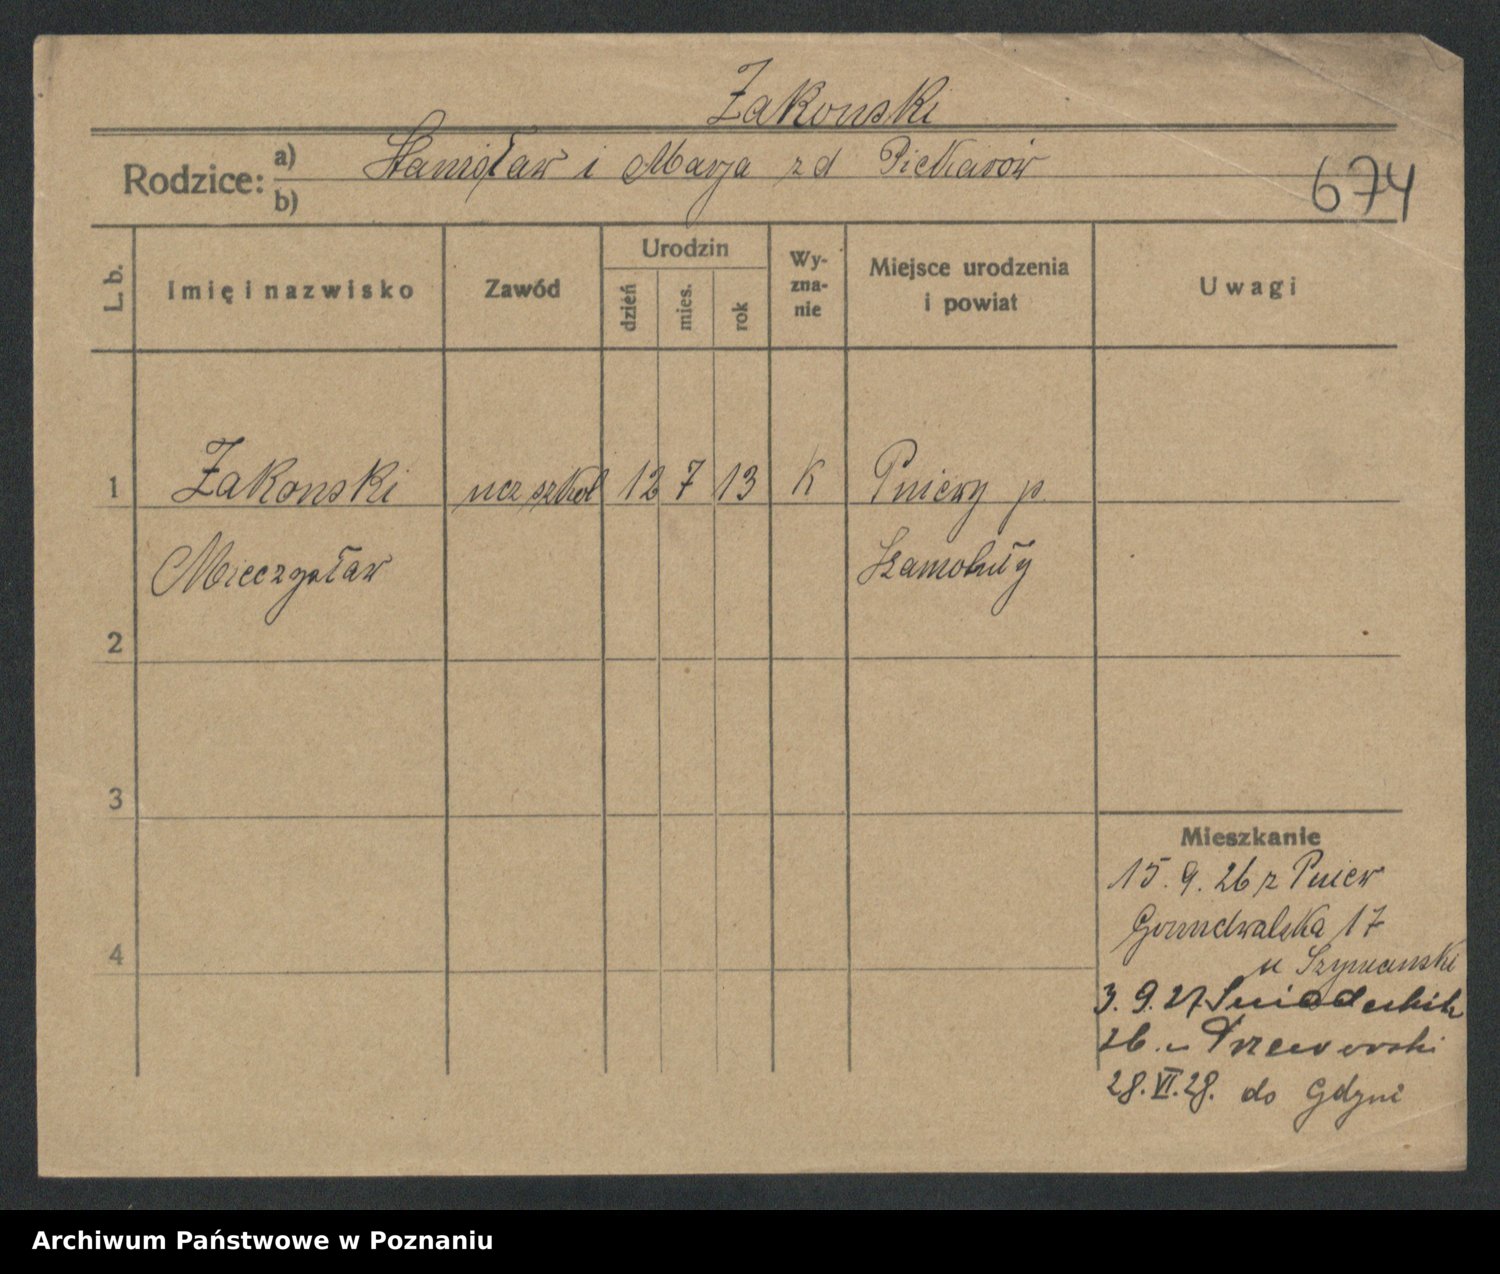 Żakowski
Rodzice: a) Stanisław i Marja zd Piekarów
b)
674
L. b.
Imię i nazwisko
Zawód
Urodzin
dzień
mies.
rok
Wy-
zna-
nie
Miejsce urodzenia
i powiat
Uwagi
1 Żakowski ucz szkol 12 7 13 K Pniewy p.
Mieczysław Szamotuły
2
3
4
Mieszkanie
15. 9. 26 z Pniew
Grundwalska 17
u Szymanski
3. 9. 27. Sniadeckich
26. u
28. VI. 28. do Gdyni
Archiwum Państwowe w Poznaniu